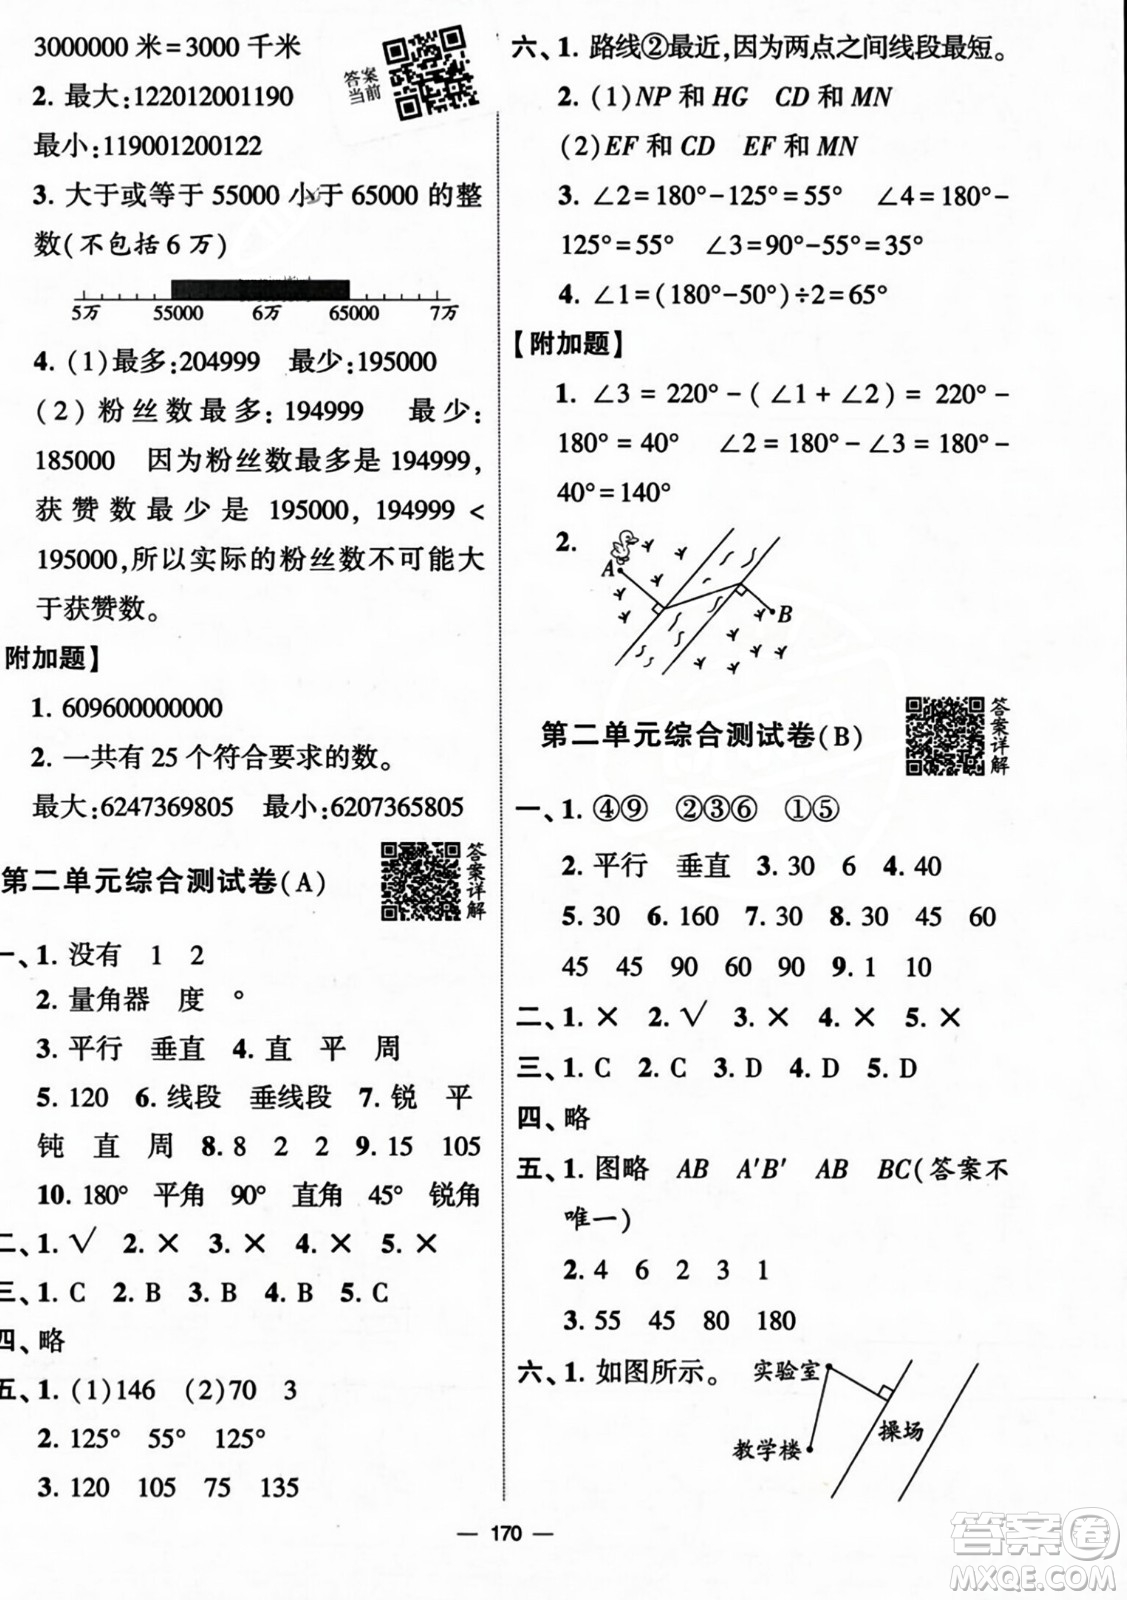 3000000 米=3000 千米
答案
当前
2. 最大:122012001190
最小:119001200122
3. 大于或等于 55000 小于 65000 的整
数(不包括 6 万)
5万 55000 6万 65000 7万
4. (1)最多:204999 最少:195000
(2)粉丝数最多:194999 最少:
185000 因为粉丝数最多是 194999,
获赞数最少是 195000, 194999 <
195000,所以实际的粉丝数不可能大
于获赞数。
附加题】
1. 609600000000
2. 一共有 25 个符合要求的数。
最大:6247369805 最小:6207365805
第二单元综合测试卷(A)
答案详解
一、1. 没有 1 2
2. 量角器 度 °
3. 平行 垂直 4. 直 平 周
5. 120 6. 线段 垂线段 7. 锐 平
钝 直 周 8. 8 2 2 9. 15 105
10. 180° 平角 90° 直角 45° 锐角
二、1. √ 2. × 3. × 4. × 5. ×
三、1. C 2. B 3. B 4. B 5. C
四、略
五、1. (1)146 (2)70 3
2. 125° 55° 125°
3. 120 105 75 135
六、1. 路线②最近,因为两点之间线段最短。
2. (1)NP 和 HG CD 和 MN
(2)EF 和 CD EF 和 MN
3. ∠2=180°-125°=55° ∠4=180°-
125°=55° ∠3=90°-55°=35°
4. ∠1=(180°-50°)÷2=65°
【附加题】
1. ∠3 = 220° - ( ∠1 + ∠2) = 220° -
180° = 40° ∠2 = 180° - ∠3 = 180° -
40°=140°
2.
A
B
第二单元综合测试卷(B)
答案详解
一、1. ④⑨ ②③⑥ ①⑤
2. 平行 垂直 3. 30 6 4. 40
5. 30 6. 160 7. 30 8. 30 45 60
45 45 90 60 90 9. 1 10
二、1. × 2. √ 3. × 4. × 5. ×
三、1. C 2. C 3. D 4. D 5. D
四、略
五、1. 图略 AB A'B' AB BC(答案不
唯一)
2. 4 6 2 3 1
3. 55 45 80 180
六、1. 如图所示。
实验室
教学楼
操场
— 170 —
答案卷
MXQE.COM